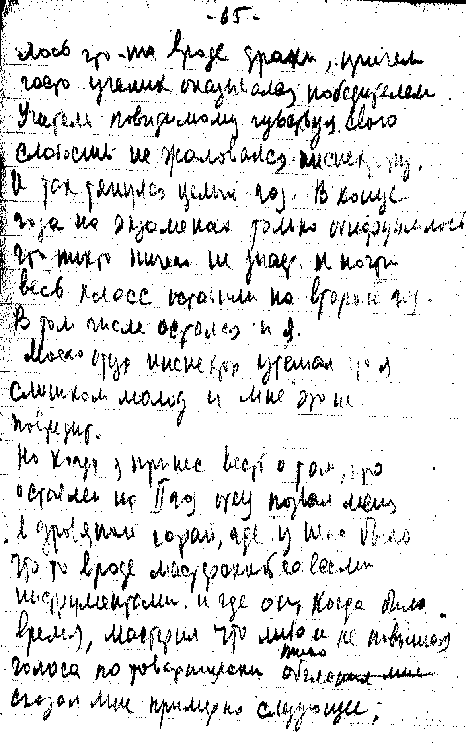 -65-
лось что-то вроде драки, причем
часто ученик оказывался победителем.
Учитель повидимому чувствуя свою
слабость не жаловался инспектору.
И так тянулся целый год. В конце
года на экзаменах только обнаружилось
что никто ничего не знает и почти
весь класс оставили на второй год.
В том числе остался и я.
Моего отца инспектор утешал что я
слишком молод и мне это не
повредит.
Но когда я принес весть о том, что
оставлен на II год отец позвал меня
в дровяной сарай, где у нас было
что то вроде мастерской со всеми
инструментами и где отец когда было
время, мастерил что либо и не повышая
голоса по товарищески тихо
сказал мне примерно следующее: